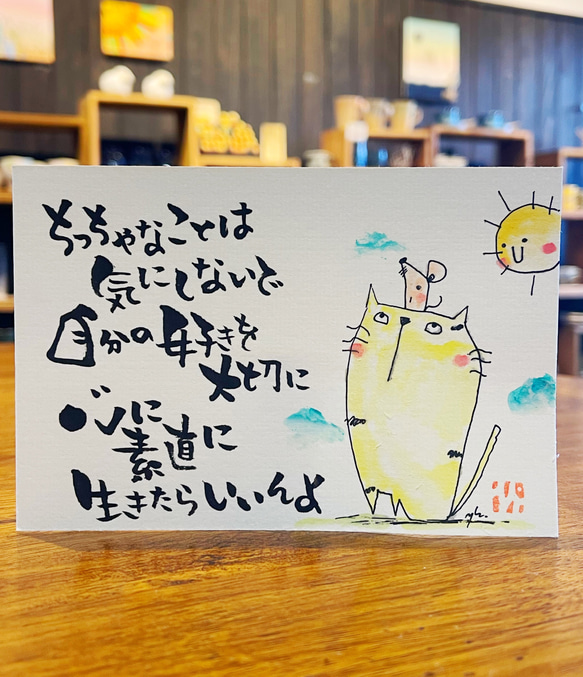 ちっちゃなことは
気にしないで
自分の好きを
大切に
心に
素直に
生きたらいいんよ